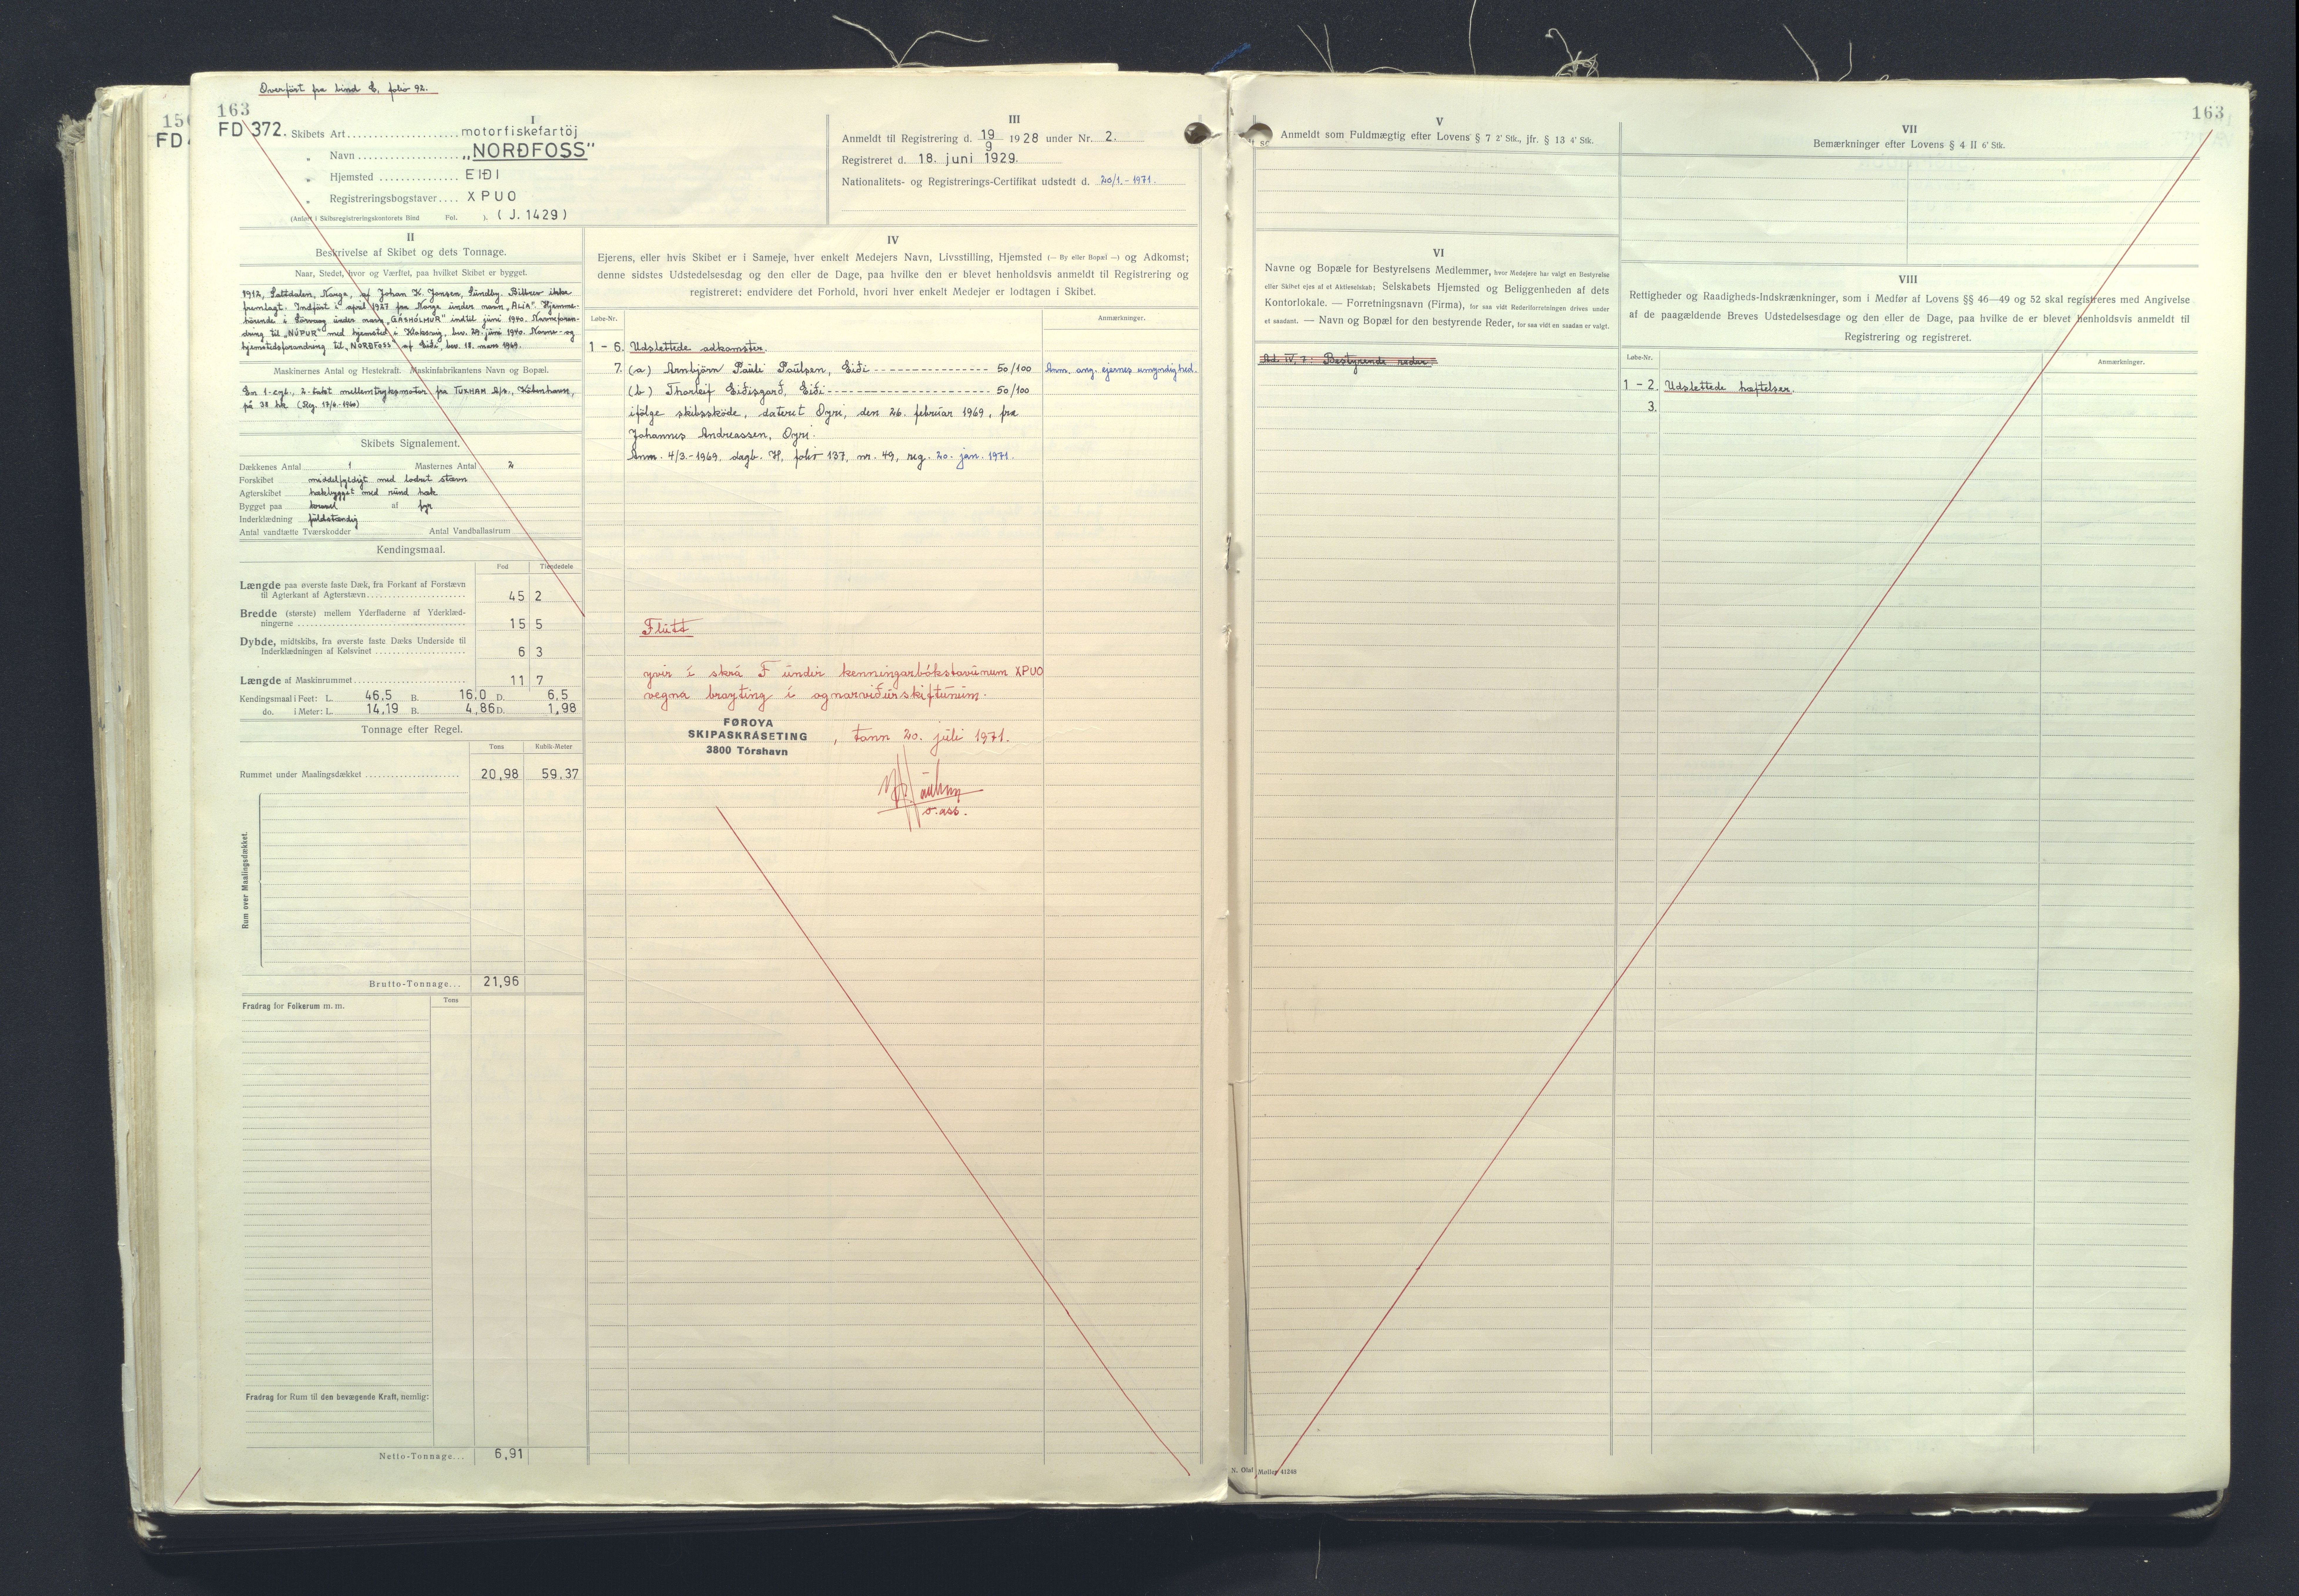 Overført fra bind E, folio 92.
163
FD 372.
I
Skibets Art motorfiskefartöj
„ Navn „NORÐFOSS"
„ Hjemsted EIÐI
„ Registreringsbogstaver XPUO
(Anført i Skibsregistreringskontorets Bind Fol. ). (J. 1429)
III
Anmeldt til Registrering d. 19/9 1928 under Nr. 2.
Registreret d. 18. juni 1929.
Nationalitets- og Registrerings-Certifikat udstedt d. 20/1.-1971.
II
Beskrivelse af Skibet og dets Tonnage.
Naar, Stedet, hvor og Værftet, paa hvilket Skibet er bygget.
1912, Saltdalen, Norge, af Johan K. Jensen, Sundby. Bilbrev ikke
fremlagt. Indført i april 1927 fra Norge under navn „ALIA". Hjemme-
hörende i Sörvaag under navn „GÁSHÓLMUR" indtil juni 1940. Navneforan-
dring til „NÚPUR" med hjemsted i Klaksvig, bev. 29. juni 1940. Navne- og
hjemstedsforandring til „NORÐFOSS" af Eiði, bev. 18. mars 1969.
Maskinernes Antal og Hestekraft. Maskinfabrikantens Navn og Bopæl.
En 1-cyl., 2-takt mellemtryksmotor fra TUXHAM A/s., København,
på 38 hk (Reg. 17/6.-1960)
Skibets Signalement.
Dækkenes Antal 1 Masternes Antal 2
Forskibet middelfyldigt med lodret stævn
Agterskibet hækbygget med rund hæk
Bygget paa kravel af fyr
Inderklædning fuldstændig
Antal vandtætte Tværskodder Antal Vandballastrum
Kendingsmaal.
Fod Tiendedele
Længde paa øverste faste Dæk, fra Forkant af Forstævn
til Agterkant af Agterstævn 45 2
Bredde (største) mellem Yderfladerne af Yderklæd-
ningerne 15 5
Dybde, midtskibs, fra øverste faste Dæks Underside til
Inderklædningen af Kølsvinet 6 3
Længde af Maskinrummet 11 7
Kendingsmaal i Feet: L. 46,5 B. 16,0 D. 6,5
do. i Meter: L. 14,19 B. 4,86 D. 1,98
Tonnage efter Regel.
Tons Kubik-Meter
Rummet under Maalingsdækket 20,98 59,37
Rum over Maalingsdækket.
Brutto-Tonnage... 21,96
Fradrag for Folkerum m. m. Tons
Fradrag for Rum til den bevægende Kraft, nemlig:
Netto-Tonnage... 6,91
IV
Ejerens, eller hvis Skibet er i Sameje, hver enkelt Medejers Navn, Livsstilling, Hjemsted (— By eller Bopæl —) og Adkomst;
denne sidstes Udstedelsesdag og den eller de Dage, paa hvilke den er blevet henholdsvis anmeldt til Registrering og
registreret; endvidere det Forhold, hvori hver enkelt Medejer er lodtagen i Skibet.
Løbe-Nr. Anmærkninger.
1 - 6. Udslettede adkomster.
7. (a) Arnbjörn Pauli Poulsen, Eiði 50/100 Anm. ang. ejernes umyndighed.
(b) Thorleif Eiðisgarð, Eiði 50/100
ifölge skibsskøde, dateret Oyri, den 26. februar 1969, fra
Johannes Andreassen, Oyri.
Anm. 4/3.-1969, dagb. H, folio 137, nr. 49, reg. 20. jan. 1971.
Flutt
yvir í skrá F undir kenningarbókstavunum XPUO
vegna broyting í ognarviðurskiftunum.
FØROYA
SKIPASKRÁSETING
3800 Tórshavn
, tann 20. juli 1971.
o. ass.
163
V
Anmeldt som Fuldmægtig efter Lovens § 7 2' Stk., jfr. § 13 4' Stk.
VII
Bemærkninger efter Lovens § 4 II 6' Stk.
VI
Navne og Bopæle for Bestyrelsens Medlemmer, hvor Medejere har valgt en Bestyrelse
eller Skibet ejes af et Aktieselskab; Selskabets Hjemsted og Beliggenheden af dets
Kontorlokale. — Forretningsnavn (Firma), for saa vidt Rederiforretningen drives under
et saadant. — Navn og Bopæl for den bestyrende Reder, for saa vidt en saadan er valgt.
Ad. IV, 7: Bestyrende reder
VIII
Rettigheder og Raadigheds-Indskrænkninger, som i Medfør af Lovens §§ 46—49 og 52 skal registreres med Angivelse
af de paagældende Breves Udstedelsesdage og den eller de Dage, paa hvilke de er blevet henholdsvis anmeldt til
Registrering og registreret.
Løbe-Nr. Anmærkninger.
1 - 2. Udslettede hæftelser.
3.
N. Olaf Møller 41248